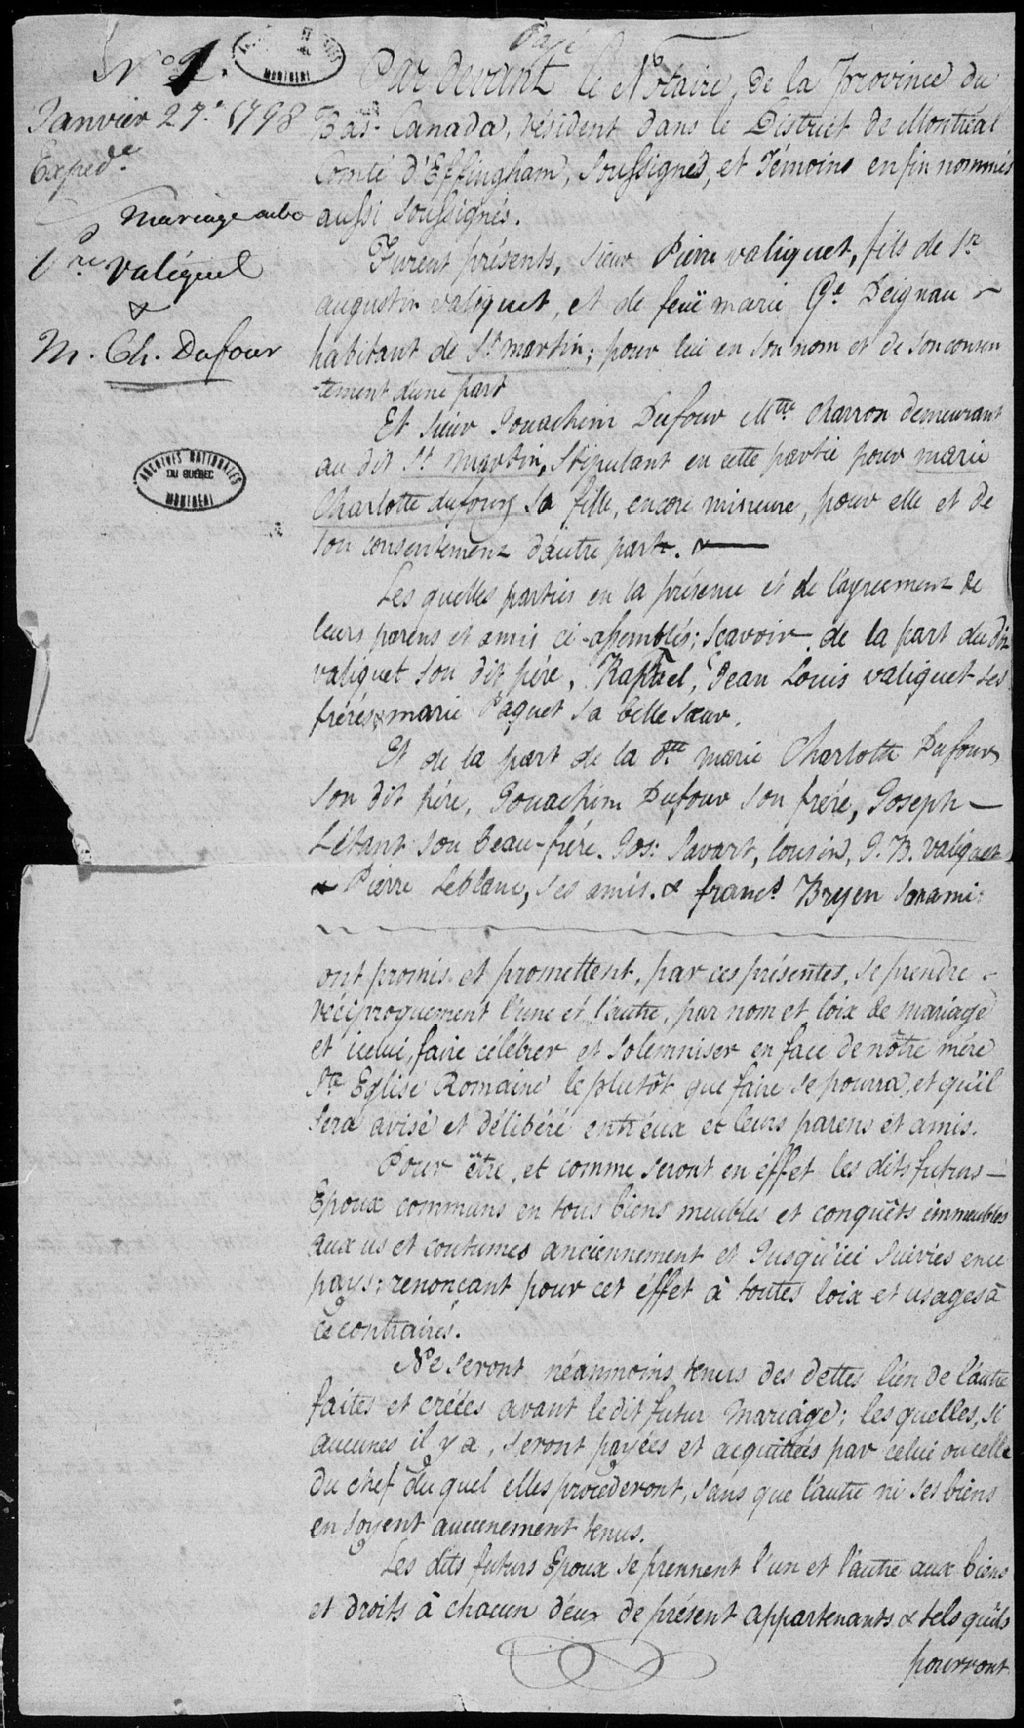 N.º 1.
Janvier 27.e 1798
Exped.e
Mariage entre
P.re Valiquet
&
M. Ch. Dufour
MONTRÉAL
ARCHIVES NATIONALES
DU QUÉBEC
MONTRÉAL
Payé
Par devant le Notaire, de la Province du
Bas-Canada, résident dans le District de Montréal
Comté d'Effingham, soussignés, et Témoins en fin nommés
aussi soussignés.
Furent présents, Sieur Pierre valiquet, fils de Sr
augustin valiquet, et de feuë marie Ge Deignau
habitant de St martin; pour lui en son nom et de son consen
-tement d'une part
Et Sieur Jouachim Dufour Mtre Charron demeurant
au dit St Martin, Stipulant en cette partie pour marie
Charlotte dufour, sa fille, encore mineure, pour elle et de
son consentement d'autre part.
Les quelles parties en la présence et de l'agreement de
leurs parens et amis ci-assemblés; Scavoir, de la part du dit
valiquet son dit père, Raphael, Jean Louis valiquet ses
fréres & marie Paquet sa belle sœur.
Et de la part de la dte marie Charlotte Dufour
son dit père, Jouachim Dufour son frére, Joseph
Létant son beau-frére, Jos: Savart, Cousin, J. B. Valiquet
& Pierre Leblanc, ses amis. & franc.s Bryen son ami:
ont promis et promettent, par ces présentes, se prendre
réciproquement l'une et l'autre, par nom et loix de mariage
et icelui, faire célébrer et solemniser en face de nôtre mére
Ste Eglise Romaine le plutôt que faire se pourra, et qu'il
sera avisé et délibéré entr'eux et leurs parens et amis.
Pour être, et comme seront en éffet les dits futurs
Epoux communs en tous biens meubles et conquêts immeubles
aux us et coutumes anciennement et Jusqu'ici suivies en ce
pays; renonçant pour cet éffet à toutes loix et usages à
ce contraires.
Ne seront néanmoins tenus des dettes l'un de l'autre
faites et créées avant le dit futur Mariage; les quelles, si
aucunes il y a, seront payées et acquittées par celui ou celle
du chef du quel elles procéderont, sans que l'autre ni ses biens
en soyent aucunement tenus.
Les dits futurs Epoux se prennent l'un et l'autre aux biens
et droits à chacun d'eux de présent appartenants & tels qu'ils
pourront